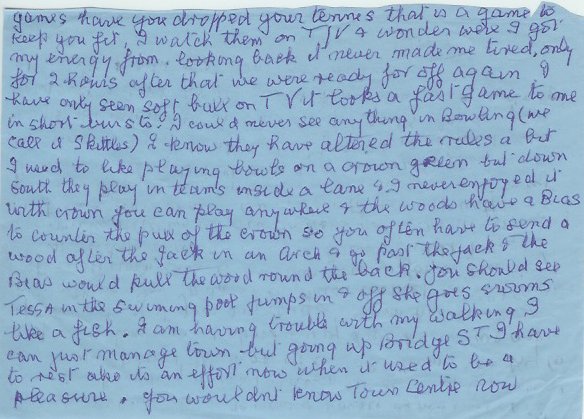 games have you dropped your tennes that is a game to
keep you fit, I watch them on TV & wonder were I got
my energy from. looking back it never made me tired, only
for 2 hours after that we were ready for off again. I
have only seen soft ball on TV it looks a fast game to me
in short bursts. I could never see anything in Bowling (we
call it Skittles) I know they have altered the rules a bit
I used to like playing bowls on a crown green but down
south they play in teams inside a lane & I never enjoyed it
with crown you can play anywhere & the woods have a Bias
to counter the pull of the crown so you often have to send a
wood after the Jack in an Arch & go past the Jack & the
Bias would pull the wood round the back. you should see
Tessa in the swiming pool jumps in & off she goes swims
like a fish. I am having trouble with my walking I
can just manage town. but going up Bridge ST I have
to rest its an effort now when it used to be a
pleasure. you wouldnt know Town Centre now